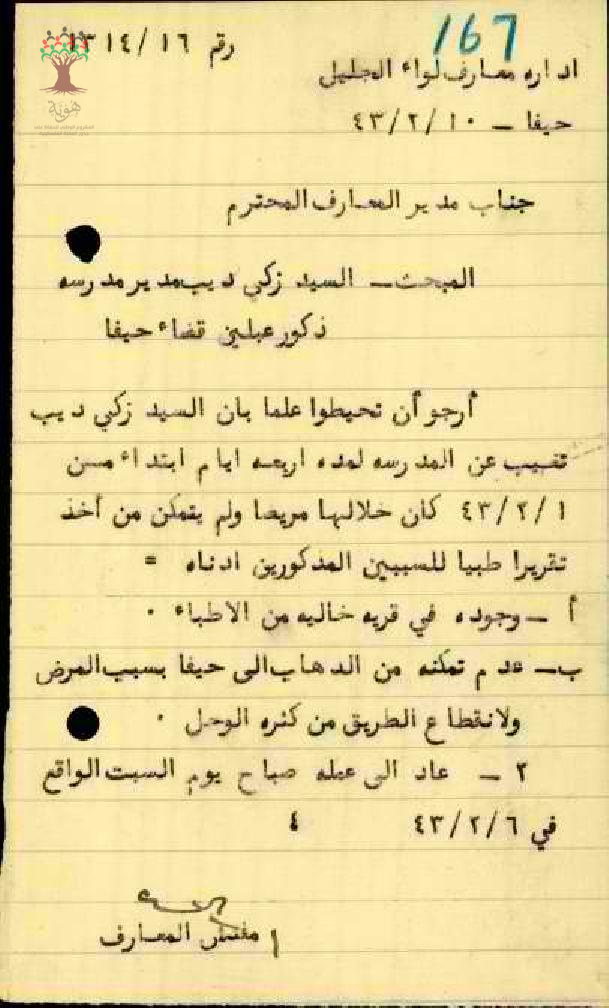 167
رقم ١٣١٤/١٦
اداره معارف لواء الجليل
حيفا – ٤٣/٢/١٠
هوية
جناب مدير المعارف المحترم
المبحث – السيد زكي ديب مدير مدرسه
ذكور عبلين قضاء حيفا
أرجو أن تحيطوا علما بان السيد زكي ديب
تغيب عن المدرسه لمده اربعه ايام ابتداء من
٤٣/٢/١ كان خلالها مريضا ولم يتمكن من أخذ
تقريرا طبيا للسببين المذكورين ادناه =
أ – وجوده في قريه خاليه من الاطباء .
ب – عدم تمكنه من الدهاب الى حيفا بسبب المرض
ولانقطاع الطريق من كثره الوحل .
٢ – عاد الى عمله صباح يوم السبت الواقع
في ٤٣/٢/٦ ٤
مفتش المعارف